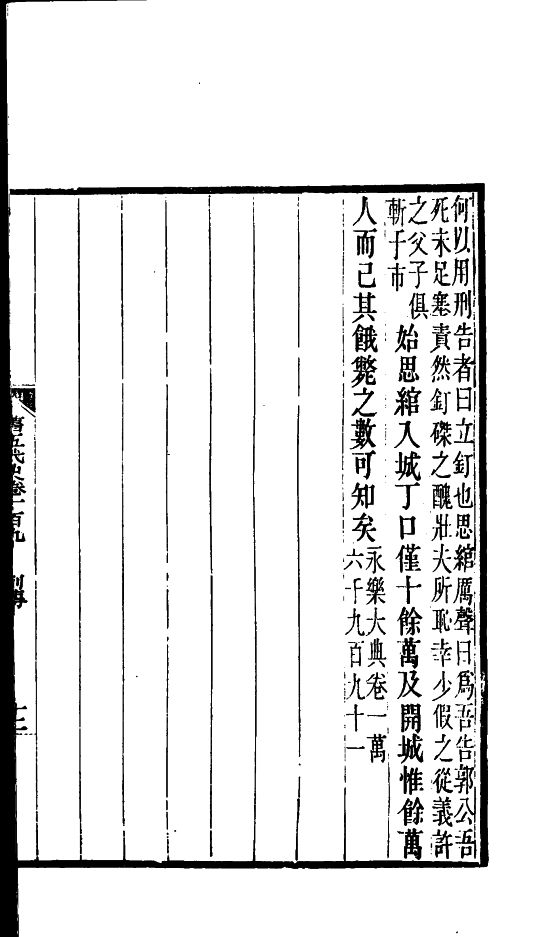 何以用刑告者曰立釘也思綰厲聲曰爲吾告郭公吾
死未足塞責然釘磔之醜壯夫所恥幸少假之從義許
之父子俱
斬于市
始思綰入城丁口僅十餘萬及開城惟餘萬
人而已其餓斃之數可知矣
永樂大典卷一萬
六千九百九十一
舊五代史卷一百九
列傳
十二